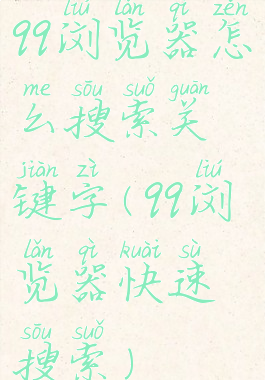 liú lǎn qì zěn
99浏览器怎
me sōu suǒ guān
么搜索关
jiàn zì liú
键字(99浏
lǎn qì kuài sù
览器快速
sōu suǒ
搜索)